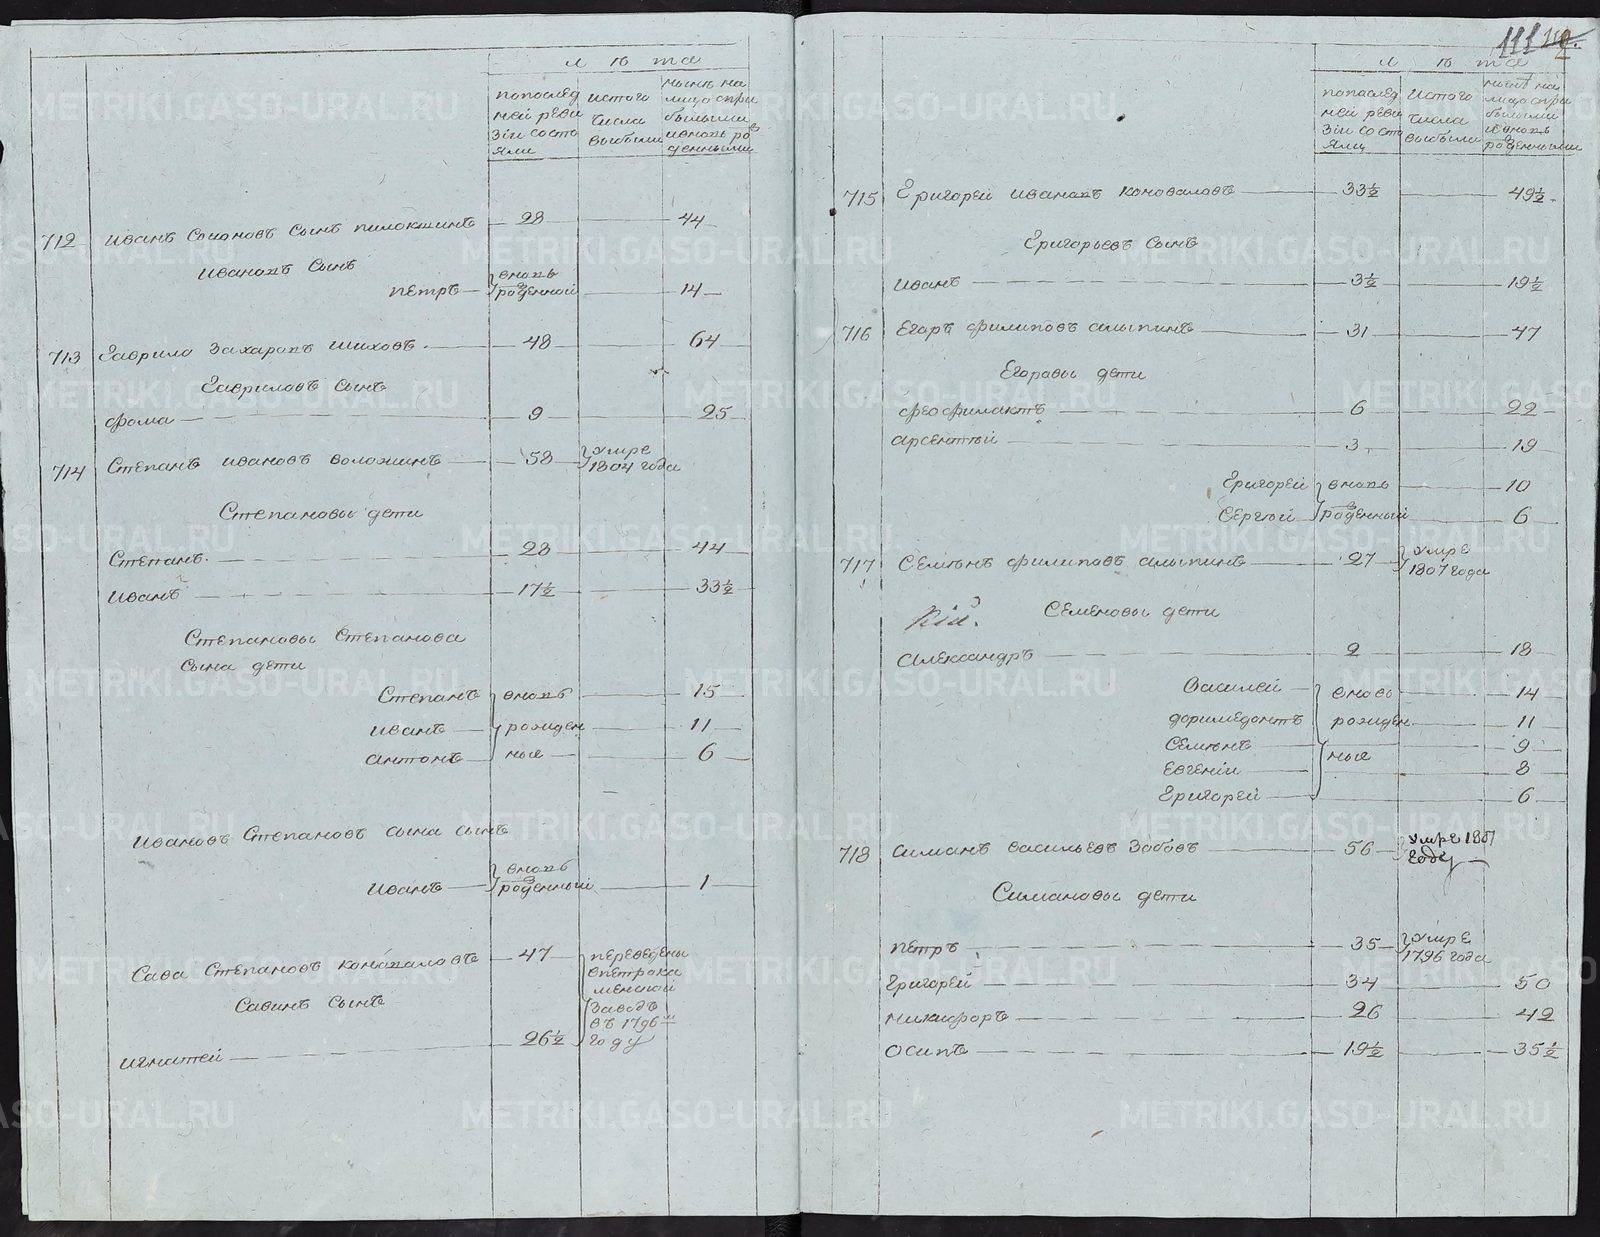 лѣта
попослед
ней реви
зіи состо
яли
истого
числа
выбыли
нынѣ на
лицо спри
былыми
ивновь ро
жденными
712 Иванъ Сысоновъ сынъ пилокшинъ 28 44
Ивановъ сынъ
Петръ вновь рожденной 14
713 Гаврило Захаровъ Шиховъ 48 64
Гавриловъ сынъ
Фома 9 25
714 Степанъ Ивановъ Волокинъ 58 умре
1804 года
Степановы дети
Степанъ 28 44
Иванъ 17½ 33½
Степановы Степанова
сына дети
Степанъ вновь 15
Иванъ рожден 11
Антонъ ные 6
Ивановъ Степановъ сына сынъ
Иванъ вновь рожденный 1
Сава Степановъ Коноваловъ 47 переведены
впетрока
менской
Савинъ сынъ
заводъ
въ 1796
Игнатей 26½ году
111
лѣта
попослед
ней реви
зіи состо
яли
истого
числа
выбыли
нынѣ на
лицо спри
былыми
ивновь
рожденными
715 Григорей Ивановъ Коноваловъ 33½ 49½
Григорьевъ сынъ
Иванъ 3½ 19½
716 Егаръ Филиповъ Алыпинъ 31 47
Егоравы дети
Феофилактъ 6 22
Арсентий 3 19
Григорей вновь 10
Сергий рожденный 6
717 Семѣнъ Филиповъ Алыпинъ 27 умре
1807 года
Семеновы дети
Александръ 2 18
Василей вновь 14
Доримедонтъ рожден 11
Семѣнъ 9
ные
Евгеніи 8
Григорей 6
718 Симанъ Васильевъ Зобовъ 56 умре 1807
году
Симановы дети
Петръ 35 умре
1796 года
Григорей 34 50
Никифоръ 26 42
Осипъ 19½ 35½
METRIKI.GASO-URAL.RU